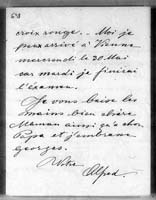 croix rouge. — Moi je
peux arrivé à Vienne
mercredi le 20 Mai
car mardi je finirai
l'examen.
Je vous baise les
mains bien chère
Maman ainsi qu'a cher
Papa et j'embrasse
Georges.
Votre
Alfred